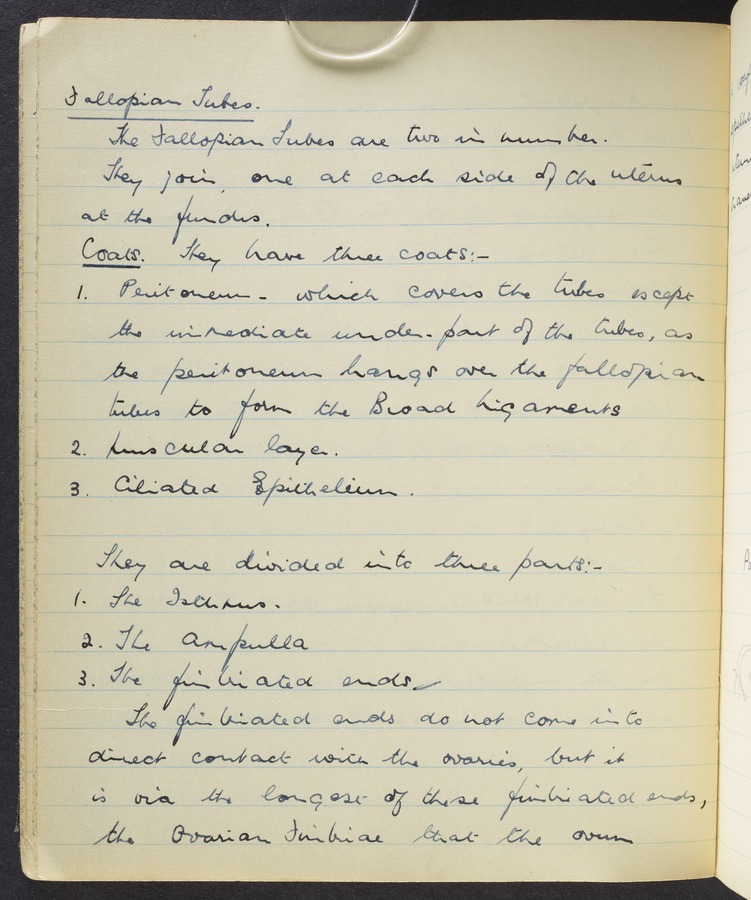 Fallopian Tubes.
The Fallopian Tubes are two in number.
They join, one at each side of the uterus
at the fundus.
Coats. They have three coats:-
1. Peritoneum - which covers the tubes except
the immediate under-part of the tubes, as
the peritoneum hangs over the fallopian
tubes to form the Broad Ligaments
2. Muscular layer.
3. Ciliated Epithelium.
They are divided into three parts:-
1. The Isthmus.
2. The Ampulla
3. The fimbriated ends.
The fimbriated ends do not come into
direct contact with the ovaries, but it
is via the longest of these fimbriated ends,
the Ovarian Fimbriae that the ovum